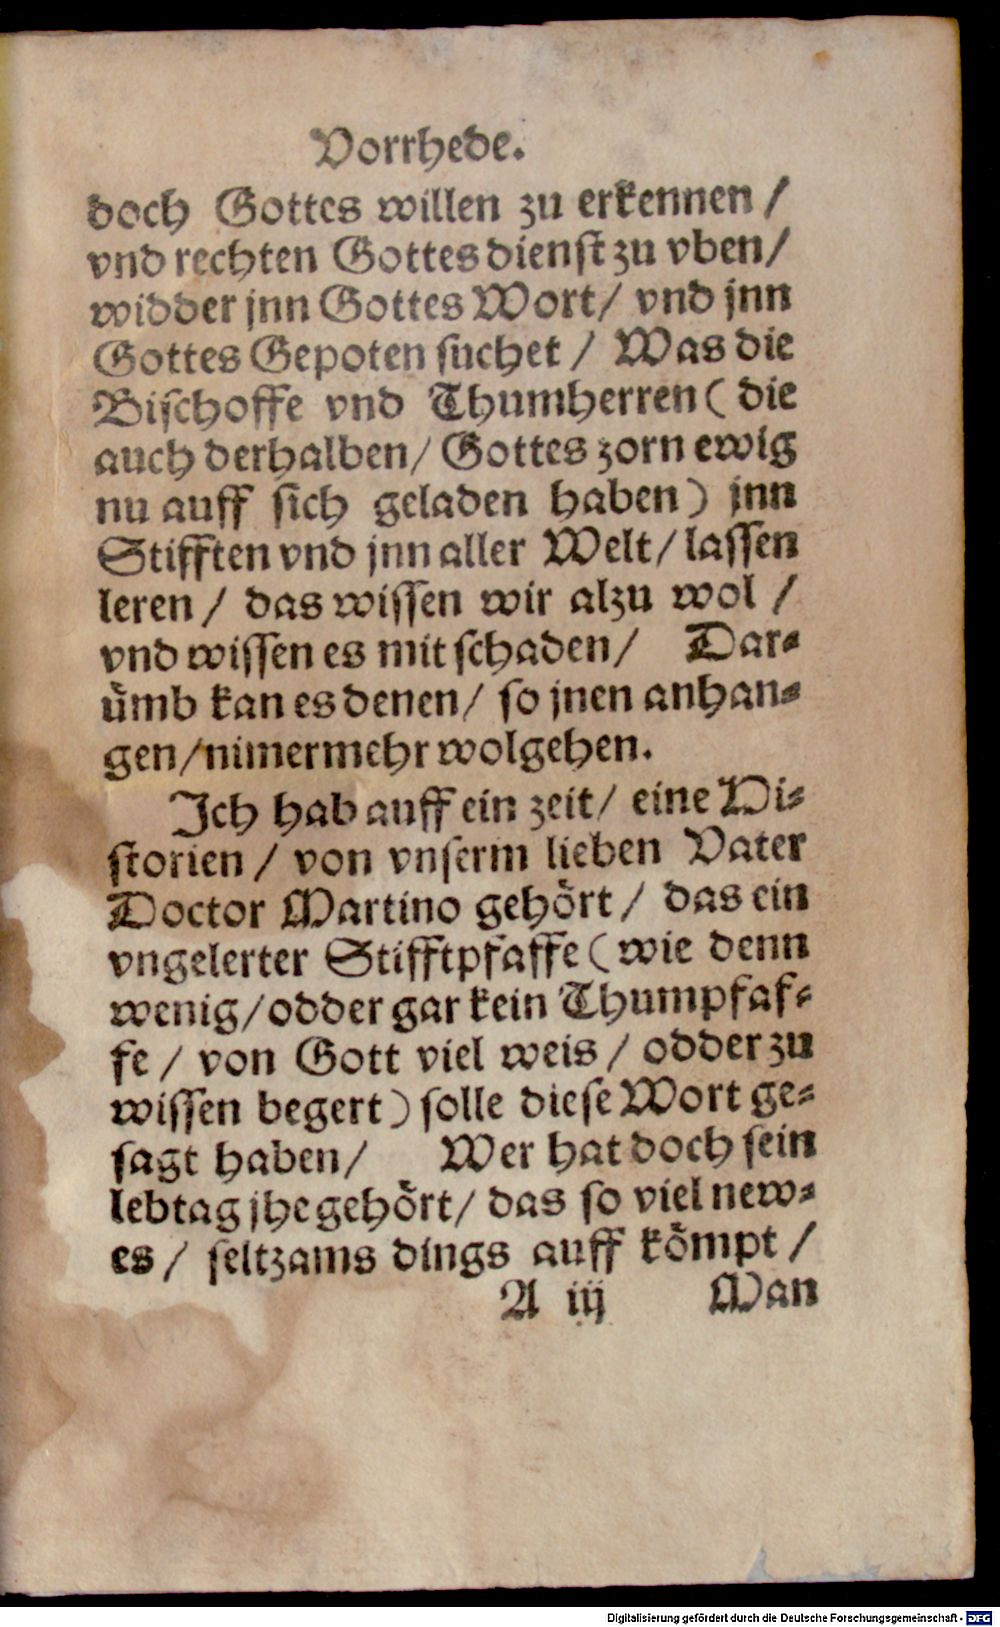 Vorrhede.
doch Gottes willen zu erkennen /
vnd rechten Gottes dienst zu vben/
widder jnn Gottes Wort/ vnd jnn
Gottes Gepoten suchet / Was die
Bischoffe vnd Thumherren ( die
auch derhalben/ Gottes zorn ewig
nu auff sich geladen haben) jnn
Stifften vnd jnn aller Welt/ lassen
leren / das wissen wir alzu wol /
vnd wissen es mit schaden/ Dar-
ümb kan es denen/ so jnen anhan-
gen/nimermehr wolgehen.
Ich hab auff ein zeit/ eine Hi-
storien / von vnserm lieben Vater
Doctor Martino gehört/ das ein
vngelerter Stifftpfaffe ( wie denn
wenig/odder gar kein Thumpfaf-
fe / von Gott viel weis / odder zu
wissen begert) solle diese Wort ge-
sagt haben/ Wer hat doch sein
lebtag jhe gehört/ das so viel new-
es / seltzams dings auff kömpt /
A iij Man
Digitalisierung gefördert durch die Deutsche Forschungsgemeinschaft - DFG